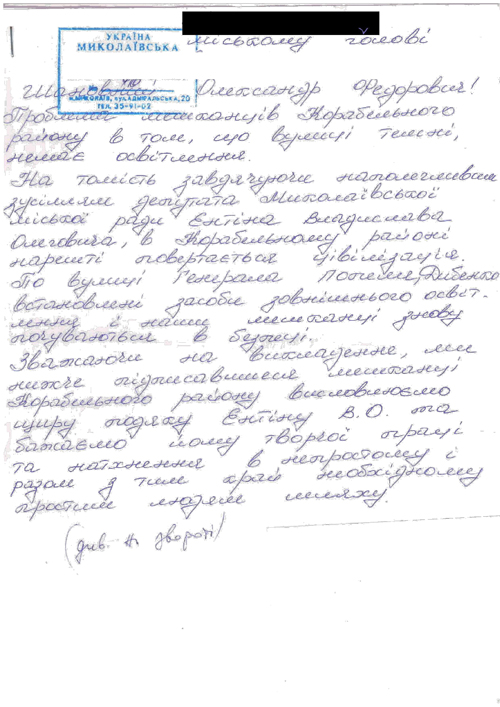 УКРАЇНА
МИКОЛАЇВСЬКА
міському голові
М.МИКОЛАЇВ, вул.АДМІРАЛЬСЬКА, 20
ТЕЛ. 35-91-02
Шановний Олександр Федорович!
Проблема мешканців Корабельного
району в том, що вулиці темні,
немає освітлення.
На томість завдячуючи наполегливим
зусіллям депутата Миколаївської
міської ради Єнтіна Владислава
Олеговича, в Корабельному районі
нарешті повертається цівілізація.
По вулиці Генерала Попеля, Дибенко
встановлені засоби зовнішнього освіт-
лення і наши мешканці знову
почуваються в безпеці.
Зважаючи на викладенне, ми
нижче підписавшиеся мешканці
Корабельного району висловлюємо
щиру подяку Єнтіну В.О. та
бажаємо йому творчої праці
та натхнення в непростому і
разом з тим край необхідному
простим людям шляху.
(див. на звороті)